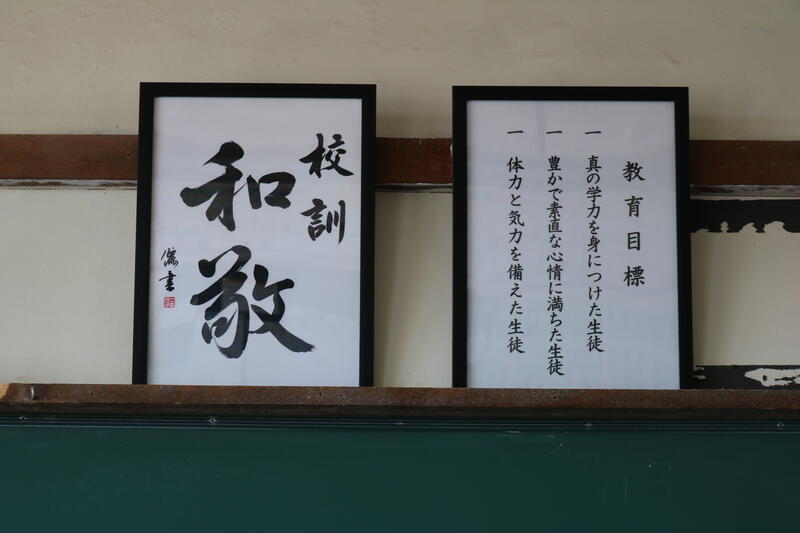 校訓
和敬
書
教育目標
一 真の学力を身につけた生徒
一 豊かで素直な心情に満ちた生徒
一 体力と気力を備えた生徒